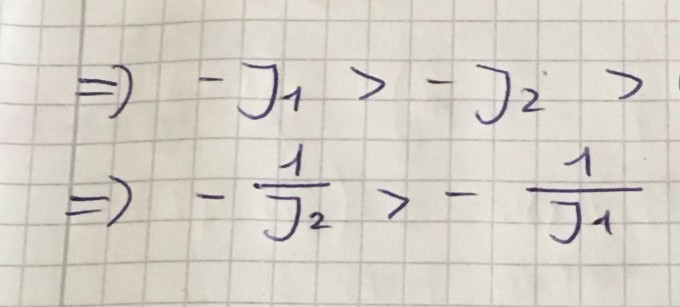 => - J₁ > - J₂ >
=> - 1/J₂ > - 1/J₁